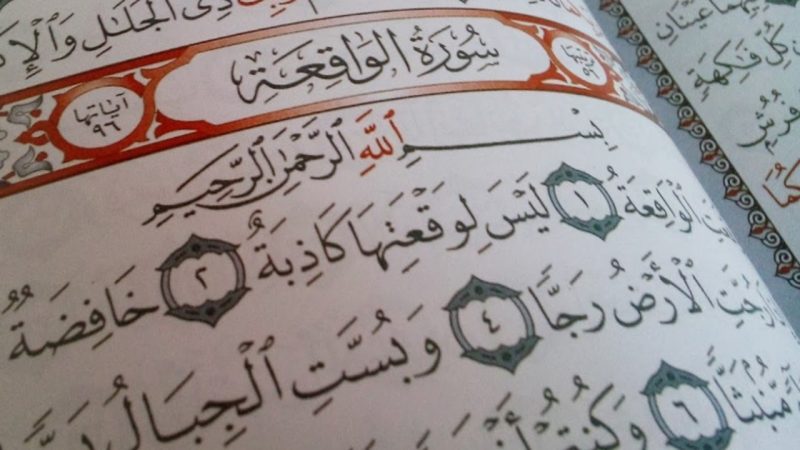 ذِى ٱلْجَلَٰلِ وَٱلْإِكْ
سُورَةُ الوَاقِعَةِ
آيَاتُهَا
٩٦
بِسْمِ ٱللَّهِ ٱلرَّحْمَٰنِ ٱلرَّحِيمِ
ٱلْوَاقِعَةُ ١ لَيْسَ لِوَقْعَتِهَا كَاذِبَةٌ ٢ خَافِضَةٌ
رُجَّتِ ٱلْأَرْضُ رَجًّا ٤ وَبُسَّتِ ٱلْجِبَالُ
مُّنۢبَثًّا ٦ وَكُنتُمْ
عَيْنَانِ
كُلِّ فَٰكِهَةٍ
فُرُشٍ